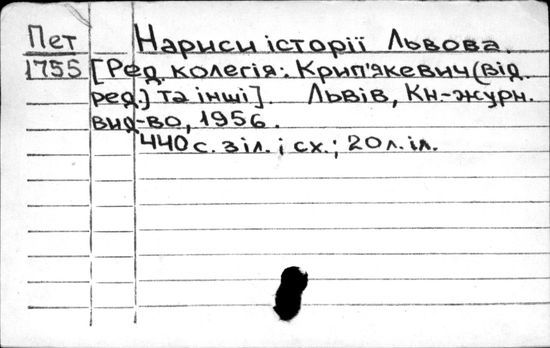 Пет Нариси історії Львова.
1755 [Ред. колегія: Крип'якевич (від.
ред.) та інші]. Львів, Кн.-журн.
вид-во, 1956.
440 с. з іл. і сх.; 20 л. іл.